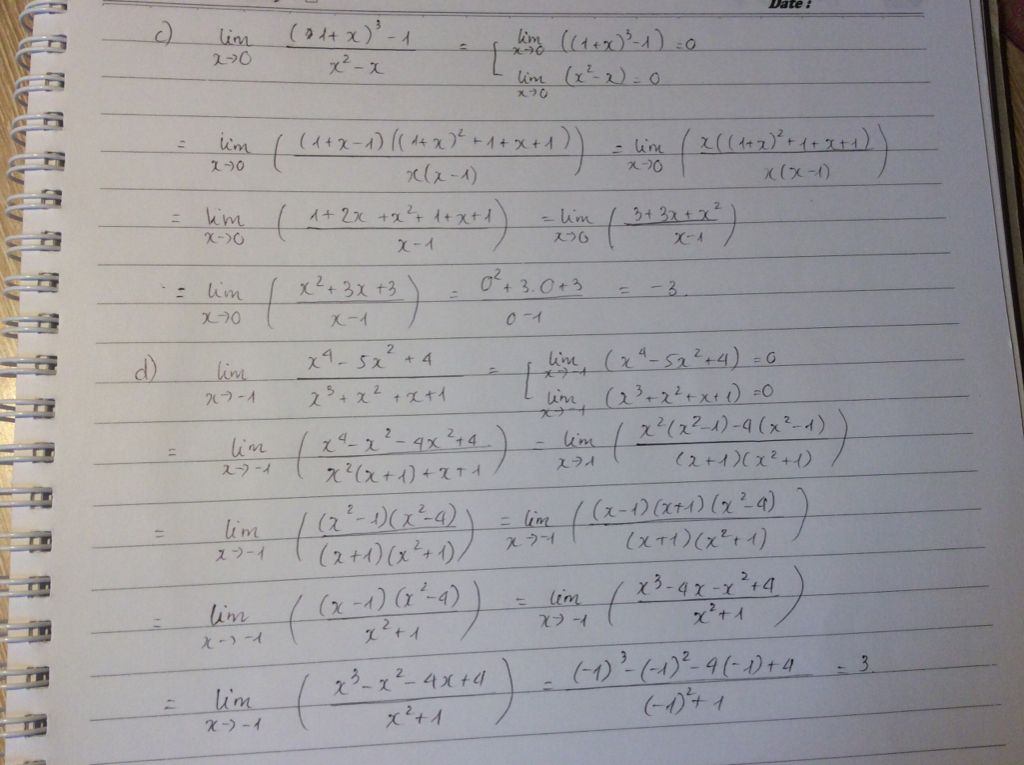 Date :
c) lim x→0 ((1+x)³ - 1)/(x² - x) = [ lim x→0 ((1+x)³-1) = 0
lim x→0 (x²-x) = 0
= lim x→0 ( ((1+x-1)((1+x)²+1+x+1))/(x(x-1)) ) = lim x→0 ( (x((1+x)²+1+x+1))/(x(x-1)) )
= lim x→0 ( (1+2x+x²+1+x+1)/(x-1) ) = lim x→0 ( (3+3x+x²)/(x-1) )
= lim x→0 ( (x²+3x+3)/(x-1) ) = (0²+3.0+3)/(0-1) = -3.
d) lim x→-1 (x⁴-5x²+4)/(x³+x²+x+1) = [ lim x→-1 (x⁴-5x²+4) = 0
lim x→-1 (x³+x²+x+1) = 0
= lim x→-1 ( (x⁴-x²-4x²+4)/(x²(x+1)+x+1) ) = lim x→1 ( (x²(x²-1)-4(x²-1))/((x+1)(x²+1)) )
= lim x→-1 ( ((x²-1)(x²-4))/((x+1)(x²+1)) ) = lim x→-1 ( ((x-1)(x+1)(x²-4))/((x+1)(x²+1)) )
= lim x→-1 ( ((x-1)(x²-4))/(x²+1) ) = lim x→-1 ( (x³-4x-x²+4)/(x²+1) )
= lim x→-1 ( (x³-x²-4x+4)/(x²+1) ) = ((-1)³-(-1)²-4(-1)+4)/((-1)²+1) = 3